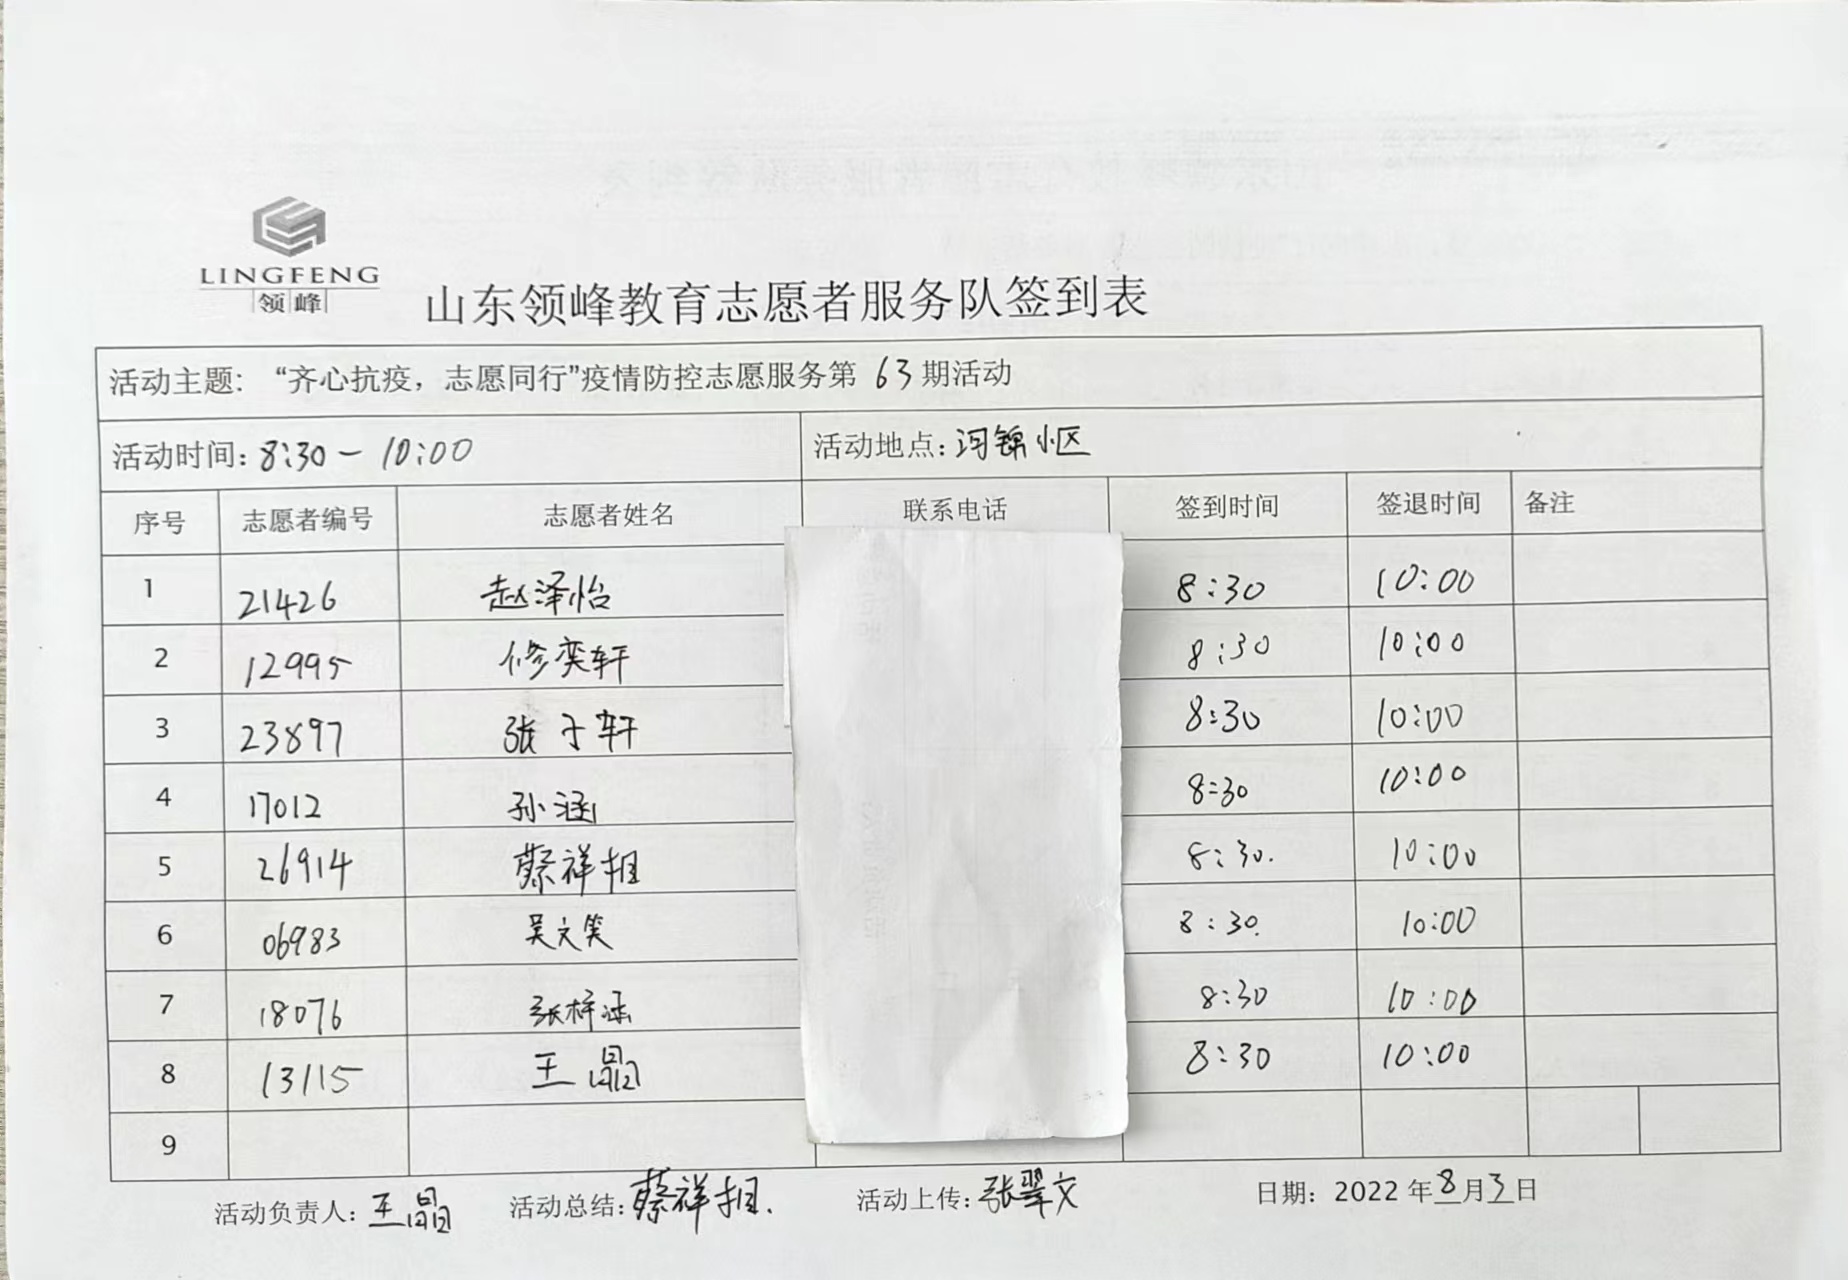 LINGFENG
领峰
山东领峰教育志愿者服务队签到表
活动主题：“齐心抗疫，志愿同行”疫情防控志愿服务第 63 期活动
活动时间：8:30 - 10:00 活动地点：河锦小区
序号 志愿者编号 志愿者姓名 联系电话 签到时间 签退时间 备注
1 21426 赵泽怡 8:30 10:00
2 12995 修奕轩 8:30 10:00
3 23897 张子轩 8:30 10:00
4 17012 孙涵 8:30 10:00
5 26914 蔡祥 8:30. 10:00
6 06983 吴文笑 8:30. 10:00
7 18076 张梓涵 8:30 10:00
8 13115 王晶 8:30 10:00
9
活动负责人：王晶 活动总结：蔡祥 活动上传：张翠文 日期：2022 年 8 月 3 日